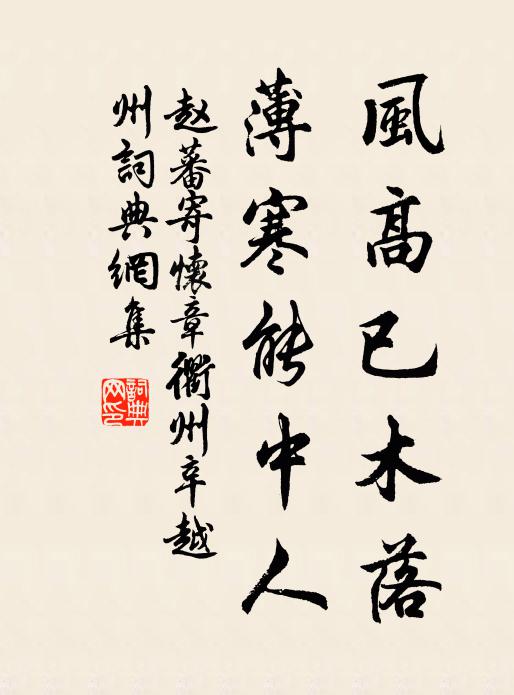 風高已木落
薄寒能中人
赵蕃寄懷章衢州卒越
州詞典網集
詞典
网印